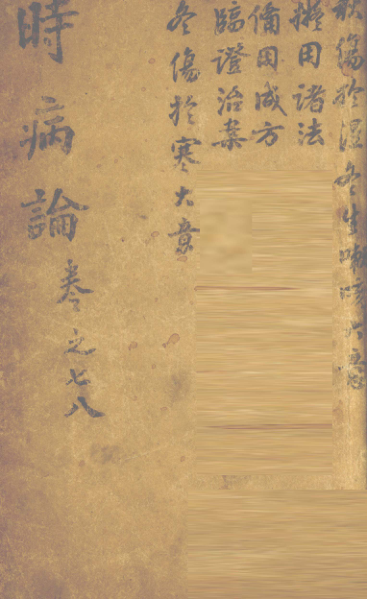 秋傷於溼冬生咳嗽大意
擬用諸法
備用成方
臨證治案
冬傷於寒大意
時病論
卷之七八